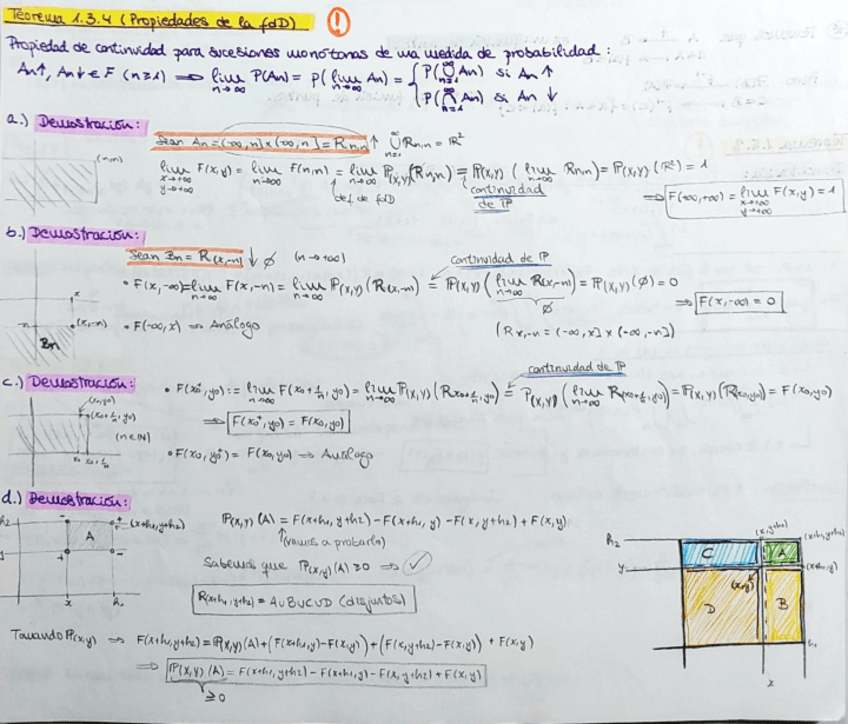 Teorema 1.3.4 (Propiedades de la fdD) !
Propiedad de continuidad para sucesiones monótonas de una medida de probabilidad:
An↑, An↓ ∈ F (n≥1) ⟹ lim n→∞ P(An) = P(lim n→∞ An) = { P(∪ n=1 ∞ An) si An ↑
P(∩ n=1 ∞ An) si An ↓
a.) Demostración:
Sean An = (-∞, n] x (-∞, n] = R n,n ↑ ∪ n=1 ∞ R n,n = ℝ²
(n,n)
lim x→+∞ y→+∞ F(x,y) = lim n→∞ F(n,n) = lim n→∞ P(x,y)(R n,n) = P(x,y)(lim n→∞ R n,n) = P(x,y)(ℝ²) = 1
def. de fdD
continuidad de P
⟹ F(+∞,+∞) = lim x→+∞ y→+∞ F(x,y) = 1
b.) Demostración:
Sean Bn = R(x,-n) ↓ ∅ (n→+∞)
continuidad de P
• F(x,-∞) = lim n→∞ F(x,-n) = lim n→∞ P(x,y)(R(x,-n)) = P(x,y)(lim n→∞ R(x,-n)) = P(x,y)(∅) = 0
∅
⟹ F(x,-∞) = 0
x
-n (x,-n)
Bn
• F(-∞,x) ⟹ Análogo
(R x,-n = (-∞,x] x (-∞,-n])
c.) Demostración:
continuidad de P
• F(x0⁺,y0) := lim n→∞ F(x0+1/n,y0) = lim n→∞ P(x,y)(R x0+1/n,y0) = P(x,y)(lim n→∞ R(x0+1/n,y0)) = P(x,y)(R(x0,y0)) = F(x0,y0)
(x0,y0)
(x0+1/n,y0)
(n∈ℕ)
x0 x0+1/n
⟹ F(x0⁺,y0) = F(x0,y0)
• F(x0,y0⁺) = F(x0,y0) ⟹ Análogo
d.) Demostración:
h2 - + (x+h1,y+h2)
A
y + -
x h1
P(x,y)(A) = F(x+h1,y+h2) - F(x+h1,y) - F(x,y+h2) + F(x,y)
(vamos a probarlo)
Sabemos que P(x,y)(A) ≥ 0 ⟹ ✓
R(x+h1,y+h2) = A∪B∪C∪D (disjuntos)
h2 (x,y+h2) (x+h1,y+h2)
C A
y (x,y) (x+h1,y)
D B
h1
x
Tomando P(x,y) ⟹ F(x+h1,y+h2) = P(x,y)(A) + (F(x+h1,y) - F(x,y)) + (F(x,y+h2) - F(x,y)) + F(x,y)
⟹ P(x,y)(A) = F(x+h1,y+h2) - F(x+h1,y) - F(x,y+h2) + F(x,y)
≥ 0